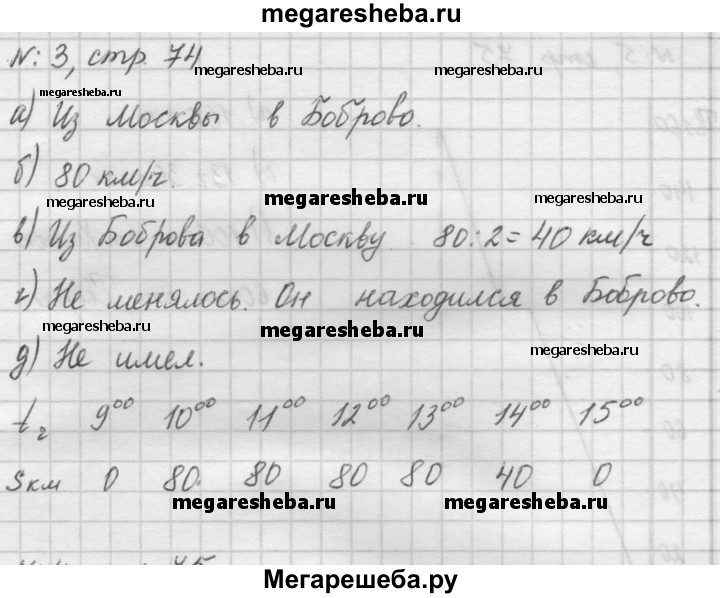 megaresheba.ru
N: 3, стр. 74
megaresheba.ru megaresheba.ru
megaresheba.ru
а) Из Москвы в Боброво.
б) 80 км/ч.
megaresheba.ru megaresheba.ru megaresheba.ru
в) Из Боброва в Москву. 80:2=40 км/ч
г) Не менялось. Он находился в Боброво.
megaresheba.ru megaresheba.ru
д) Не имел. megaresheba.ru
t г 9⁰⁰ 10⁰⁰ 11⁰⁰ 12⁰⁰ 13⁰⁰ 14⁰⁰ 15⁰⁰
S км 0 80. 80 80 80 40 0
megaresheba.ru megaresheba.ru
Мегарешеба.ру